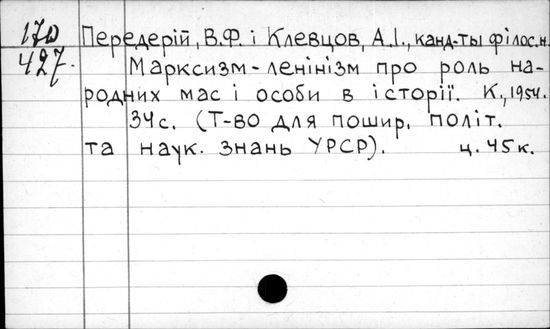 170 Передерій, В.Ф. і Клевцов, А.І., канд-ты філос.н
427. Марксизм-ленінізм про роль на-
родних мас і особи в історії. К., 1954.
34с. (Т-во для пошир. політ.
та наук. знань УРСР). ц. 45к.